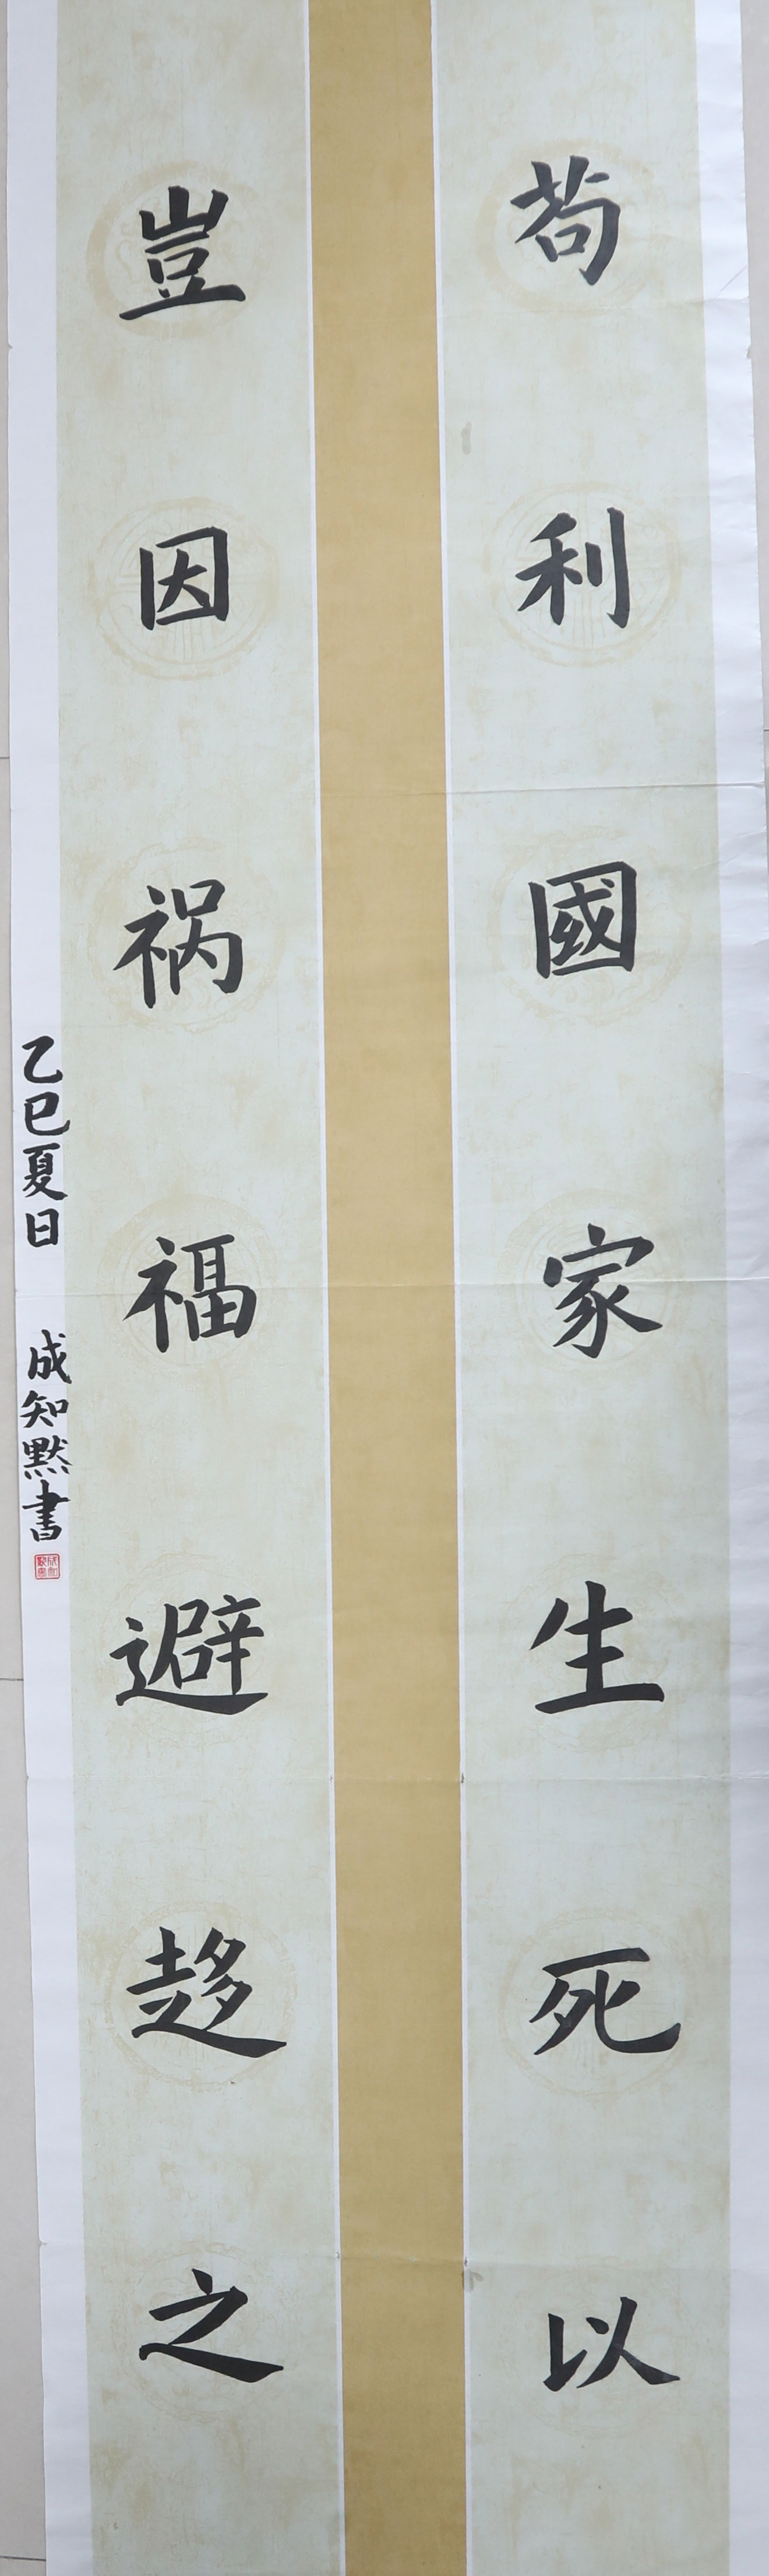 苟利國家生死以
豈因祸福避趍之
乙巳夏日 成知默書